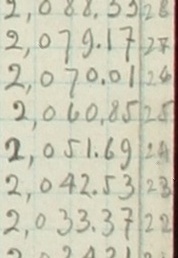 2,088.33 28
2,079.17 27
2,070.01 26
2,060.85 25
2,051.69 24
2,042.53 23
2,033.37 22